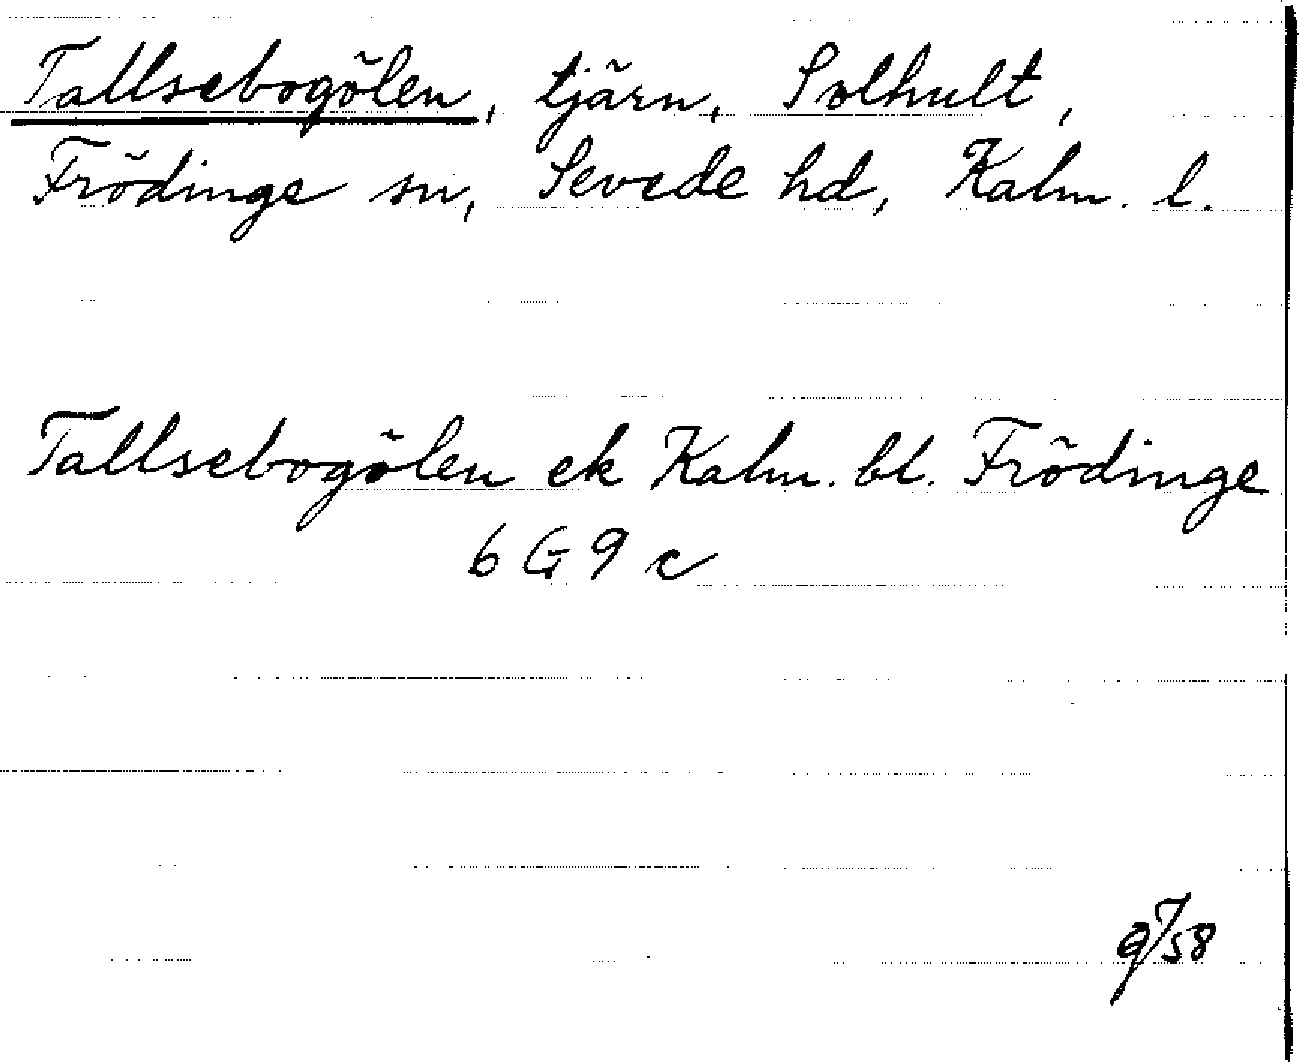 Tallsebogölen, tjärn, Solhult,
Frödinge sn, Sevede hd, Kalm. l.
Tallsebogölen ek Kalm. bl. Frödinge
6 G 9 c